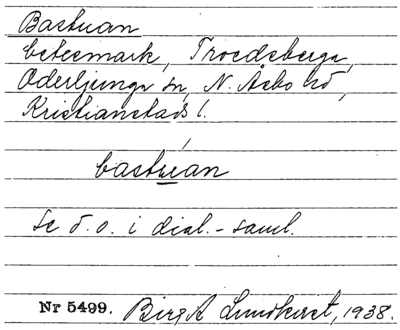 Bastuan
betesmark, Troedsberga,
Oderljunga sn, N. Åsbo hd,
Kristianstads l.
bastuan
Se d. o. i dial.-saml.
Nr 5499. Birgit Lundkvist, 1938.